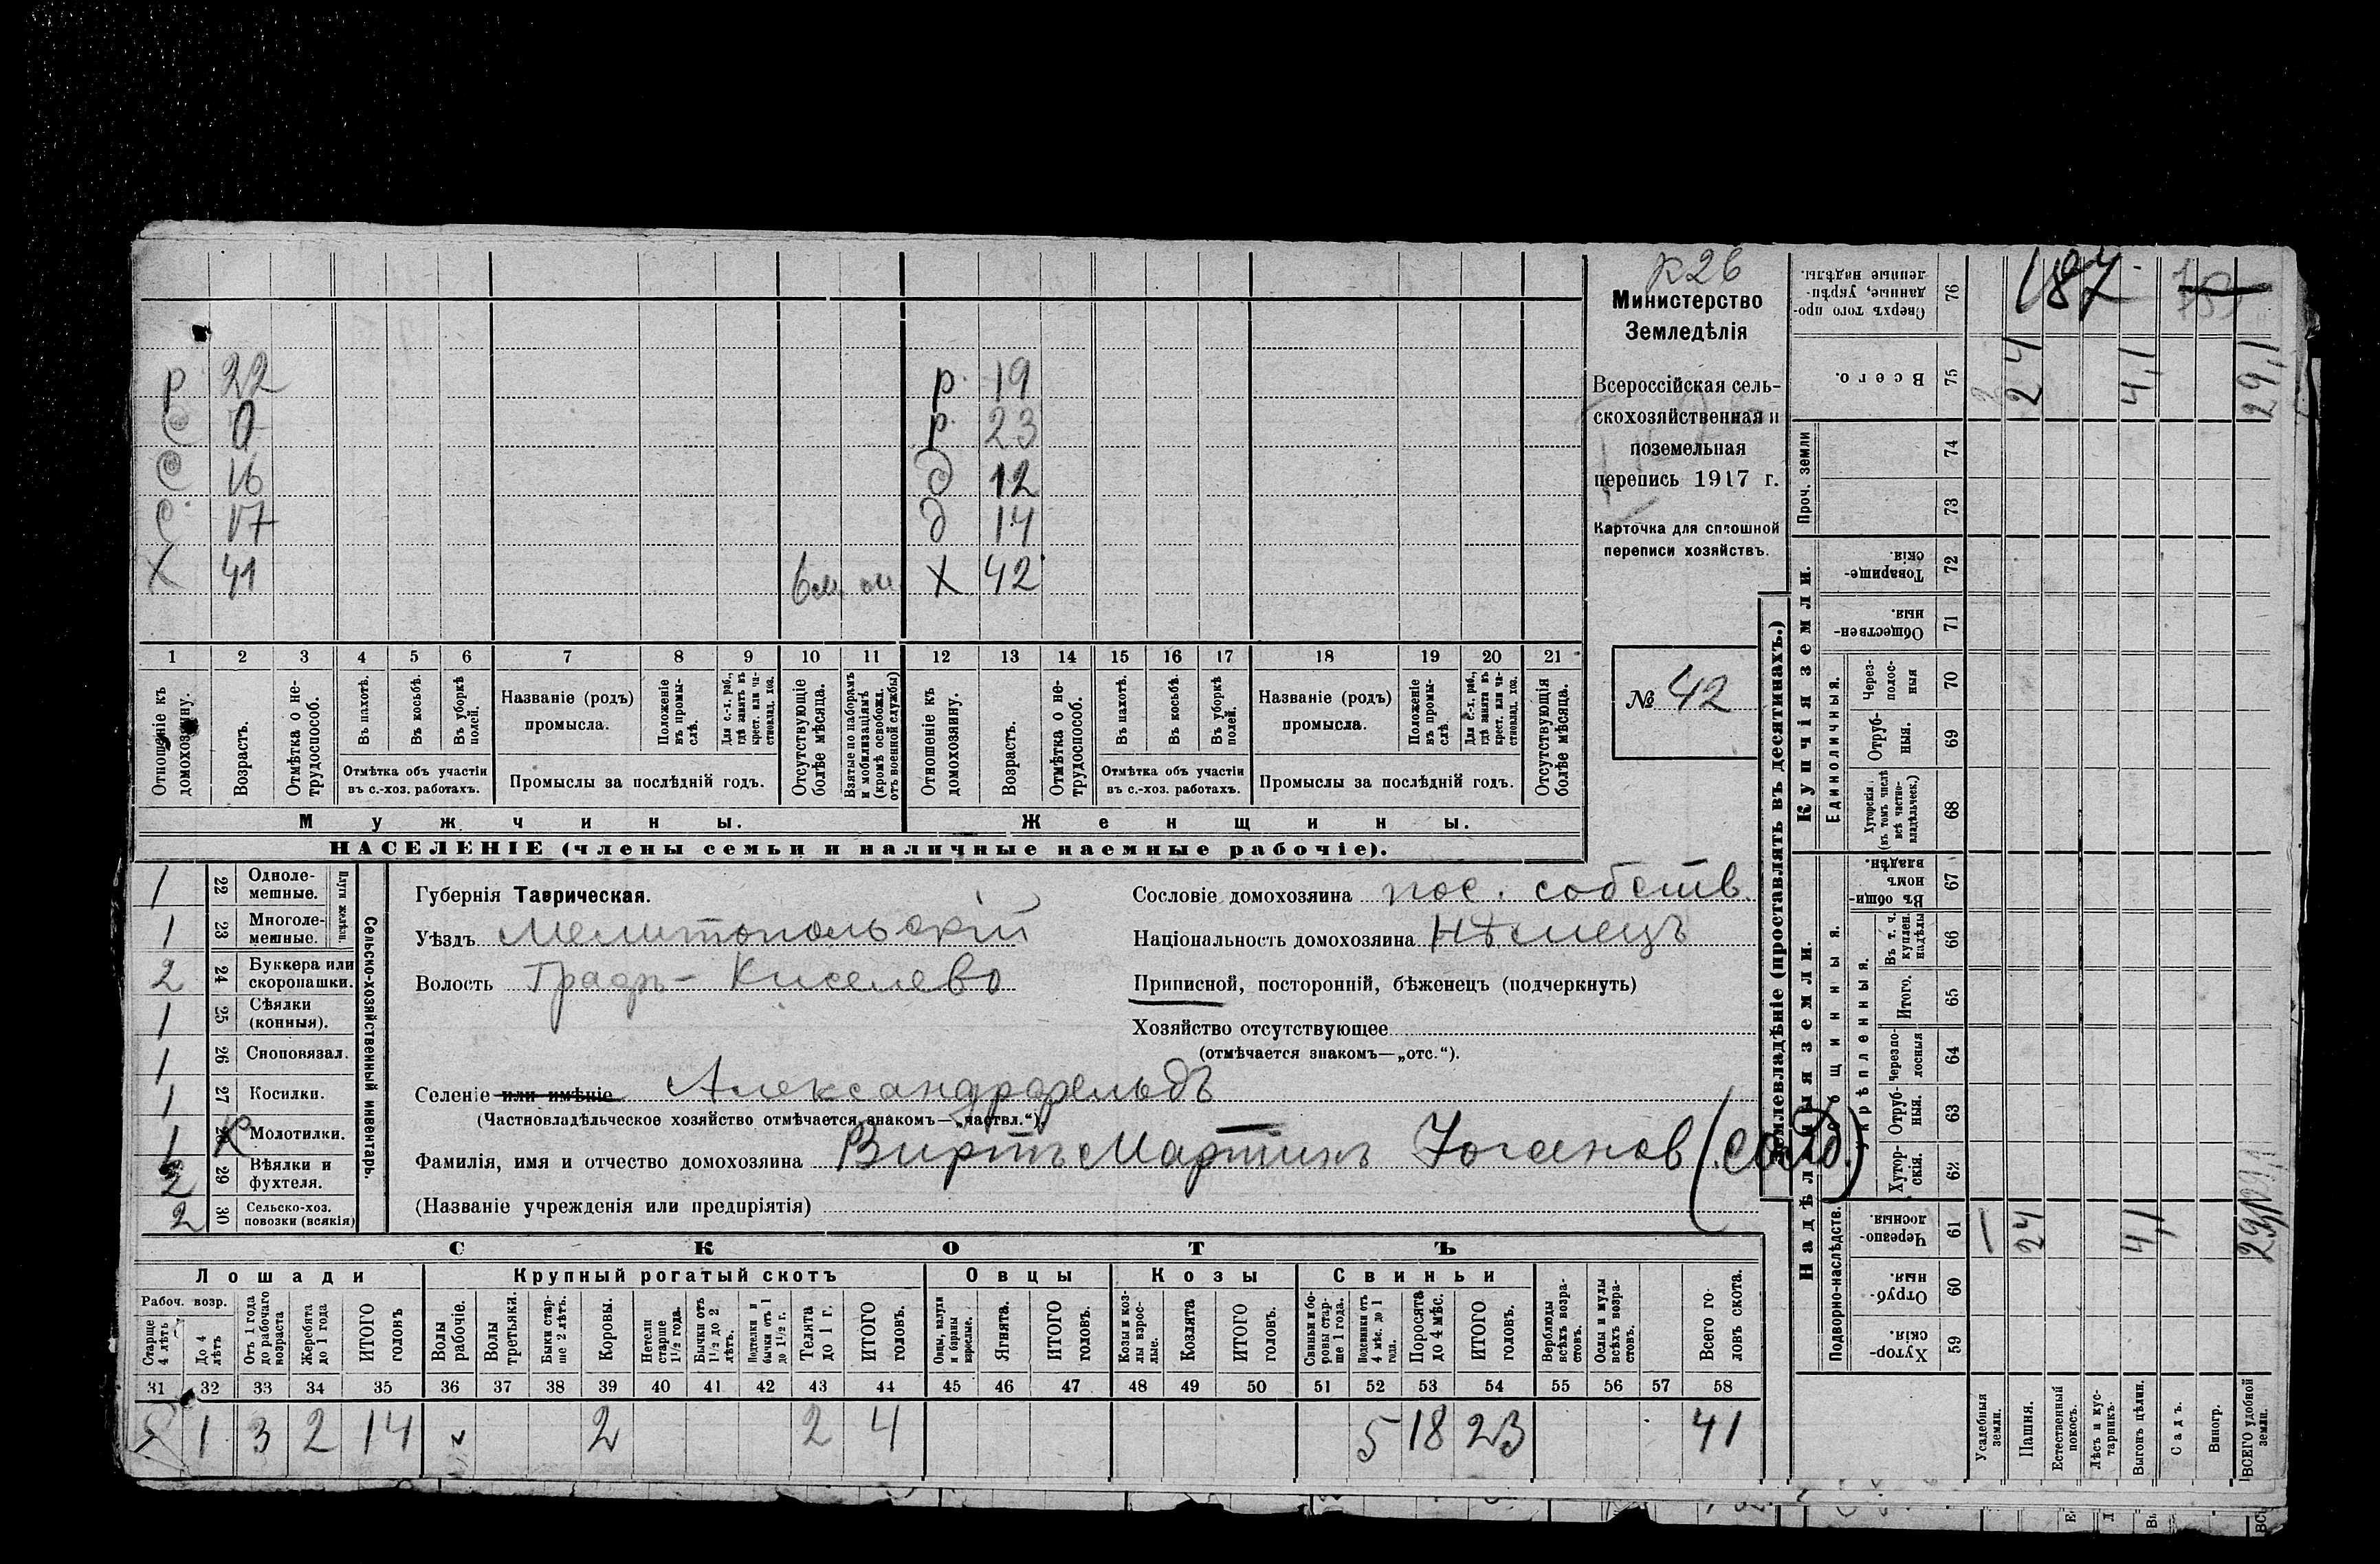 К26
Министерство
Земледѣлія
Всероссійская сель-
скохозяйственная и
поземельная
перепись 1917 г.
Карточка для сплошной
переписи хозяйствъ.
№ 42
р 22 р. 19
с р. 23
с 16 д 12
с 17 д 14
Х 41 Х 42
1 2 3 4 5 6 7 8 9 10 11 12 13 14 15 16 17 18 19 20 21
Отношеніе къ домохозяину.
Возрастъ.
Отмѣтка о не-трудоспособ.
Въ пахотѣ.
Въ косьбѣ.
Въ уборкѣ полей.
Отмѣтка объ участіи въ с.-хоз. работахъ.
Названіе (родъ) промысла.
Положеніе въ промы-слѣ.
Для с.-х. раб., гдѣ занятъ въ крест. или ча-стновлад. хоз.
Промыслы за послѣдній годъ.
Отсутствующіе болѣе мѣсяца.
Взятые по наборамъ и мобилизаціямъ (кромѣ освобожд. отъ военной службы)
Отношеніе къ домохозяину.
Возрастъ.
Отмѣтка о не-трудоспособ.
Въ пахотѣ.
Въ косьбѣ.
Въ уборкѣ полей.
Отмѣтка объ участіи въ с.-хоз. работахъ.
Названіе (родъ) промысла.
Положеніе въ промы-слѣ
Для с.-х. раб., гдѣ занята въ крест. или ча-стновлад. хоз.
Промыслы за послѣдній годъ.
Отсутствующія болѣе мѣсяца.
Мужчины. Женщины.
НАСЕЛЕНІЕ (члены семьи и наличные наемные рабочіе).
Сельско-хозяйственный инвентарь.
Плуги желѣзн.
1 22 Одноле-мешные.
1 23 Многоле-мешные.
2 24 Буккера или скоропашки.
1 25 Сѣялки (конныя).
1 26 Сноповязал.
1 27 Косилки.
1 Молотилки.
2 29 Вѣялки и фухтеля.
2 30 Сельско-хоз. повозки (всякія)
Губернія Таврическая.
Уѣздъ Мелитопольскій
Волость Графъ-Киселево
Сословіе домохозяина пос. собств.
Національность домохозяина Нѣмецъ
Приписной, посторонній, бѣженецъ (подчеркнуть)
Хозяйство отсутствующее
(отмѣчается знакомъ—„отс.“).
Селеніе или имѣніе Александрфельдъ
(Частновладѣльческое хозяйство отмѣчается знакомъ—„частвл.“).
Фамилія, имя и отчество домохозяина Виртъ Мартинъ Юганов (солд.)
(Названіе учрежденія или предпріятія)
СКОТЪ
Лошади Крупный рогатый скотъ Овцы Козы Свиньи
Рабоч. возр.
Старше 4 лѣтъ
До 4 лѣтъ
Отъ 1 года до рабочаго возраста
Жеребята до 1 года
ИТОГО головъ
Волы рабочіе.
Волы третьяки.
Быки стар-ше 2 лѣтъ.
Коровы.
Нетели старше 1½ года.
Бычки отъ 1½ до 2 лѣтъ.
Подтелки и бычки отъ 1 до 1½ г.
Телята до 1 г.
ИТОГО головъ.
Овцы, валухи и бараны взрослые.
Ягнята.
ИТОГО головъ.
Козы и коз-лы взрос-лые.
Козлята
ИТОГО головъ.
Свиньи и бо-ровы стар-ше 1 года.
Подсвинки отъ 4 мѣс. до 1 года.
Поросята до 4 мѣс.
ИТОГО головъ.
Верблюды всѣхъ возра-стовъ.
Ослы и мулы всѣхъ возра-стовъ.
Всего го-ловъ скота.
31 32 33 34 35 36 37 38 39 40 41 42 43 44 45 46 47 48 49 50 51 52 53 54 55 56 57 58
1 3 2 14 2 2 4 5 18 23 41
Землевладѣніе (проставлять въ десятинахъ.)
Надѣльныя земли.
Подворно-наслѣдств.
Хутор-скія. 59
Отруб-ныя. 60
Черезпо-лосныя. 61
Общинныя.
Укрѣпленныя.
Хутор-скія. 62
Отруб-ныя. 63
Черезпо-лосныя 64
Итого. 65
Въ т. ч. куплен. надѣлы 66
Въ общин-номъ владѣн. 67
Купчія земли.
Единоличныя.
Хуторскія. (въ томъ числѣ всѣ частно-владѣльческ.) 68
Отруб-ныя. 69
Через-полос-ныя 70
Обществен-ныя. 71
Товарище-скія. 72
Проч. земли
73 74
Всего. 75
Сверхъ того про-данные, укрѣп-ленные надѣлы. 76
Усадебныя земли. 1
Пашня. 24 24
Естественный покосъ.
Лѣсъ и кус-тарникъ.
Выгонъ цѣлин. 4,1 4,1
Садъ.
Виногр.
ВСЕГО удобной земли. 29,1 29,1
187